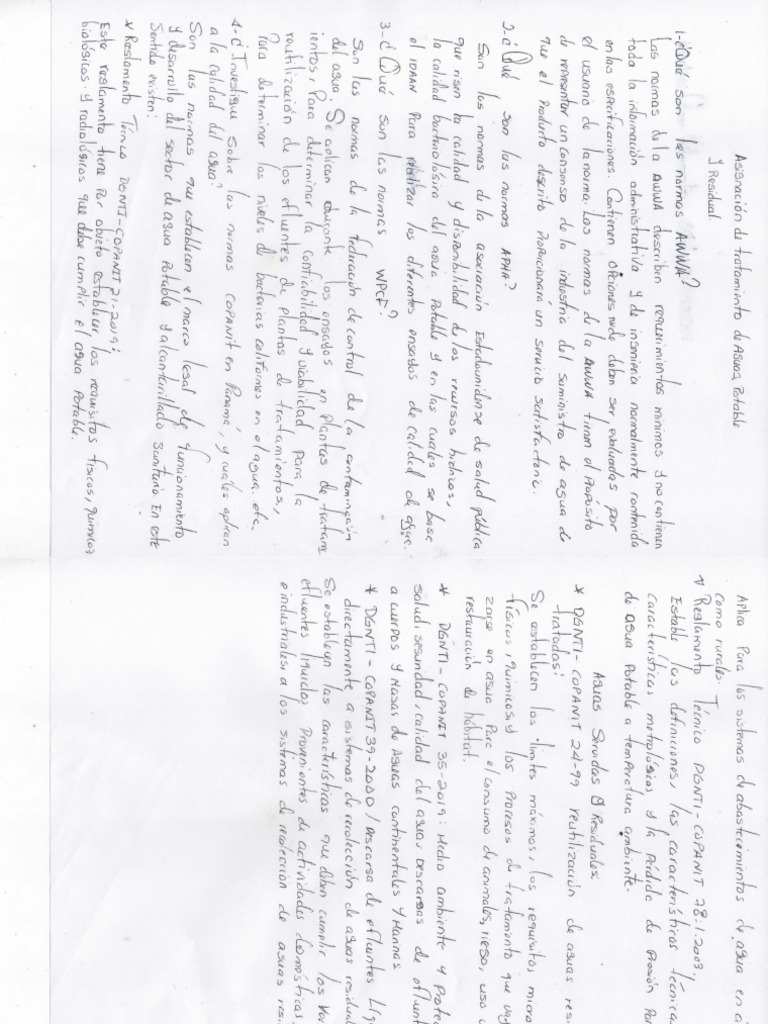 Asignación de tratamiento de Agua Potable
y Residual
1-¿Qué son las normas AWWA?
Las normas de la AWWA describen requerimientos mínimos y no contienen
toda la información administrativa y de ingeniería normalmente contenida
en las especificaciones. Contienen opciones que deben ser evaluadas por
el usuario de la norma. Las normas de la AWWA tienen el Propósito
de representar un consenso de la industria del suministro de agua de
que el Producto descrito Proporcionará un servicio satisfactorio.
2-¿Qué son las normas APHA?
Son las normas de la asociación Estadounidense de salud pública
que rigen la calidad y disponibilidad de los recursos hídricos,
la calidad bacteriológica del agua Potable y en las cuales se basa
el IDAAN Para realizar los diferentes ensayos de calidad de agua.
3-¿Qué son las normas WPCF?
Son las normas de la federación de control de la contaminación
del agua. Se aplican durante los ensayos en Plantas de tratam
ientos, Para determinar la confiabilidad y viabilidad para la
reutilización de los efluentes de plantas de tratamientos,
Para determinar los niveles de bacterias coliformes en el agua. etc.
4-¿Investigue sobre las normas COPANIT en Panamá, y cuáles aplican
a la calidad del agua?
Son las normas que establecen el marco legal de funcionamiento
y desarrollo del sector de agua Potable y alcantarillado sanitario. En este
sentido existen:
* Reglamento Técnico DGNTI-COPANIT 21-2019:
Este reglamento tiene Por objeto establecer los requisitos físicos, químicos
biológicos y radiológicos que debe cumplir el agua Potable.
Aplica Para los sistemas de abastecimientos de agua en
como rurales.
* Reglamento Técnico DGNTI-COPANIT 78:1.2003/
Estable las definiciones, las características técnica
características metrológicas y la Pérdida de Presión Par
de agua Potable a temperatura ambiente.
Aguas Servidas y Residuales.
* DGNTI-COPANIT 24-99 reutilización de aguas resi
tratadas:
Se establecen los límites máximos, los requisitos, micro
físicos, químicos, y los Procesos de tratamiento que
zarse en agua Para el consumo de animales, riego, uso
restauración de hábitat.
* DGNTI-COPANIT 35-2019: Medio ambiente y Protec
salud, seguridad, calidad del agua, Descargas de efluent
a cuerpos y Masas de Aguas continentales y Marinas
* DGNTI-COPANIT 39-2000/Descarga de efluentes Líq
directamente a sistemas de recolección de aguas residual
Se establecen las características que deben cumplir los
efluentes líquidos Provenientes de actividades domésticas,
e industriales, a los sistemas de recolección de aguas resi